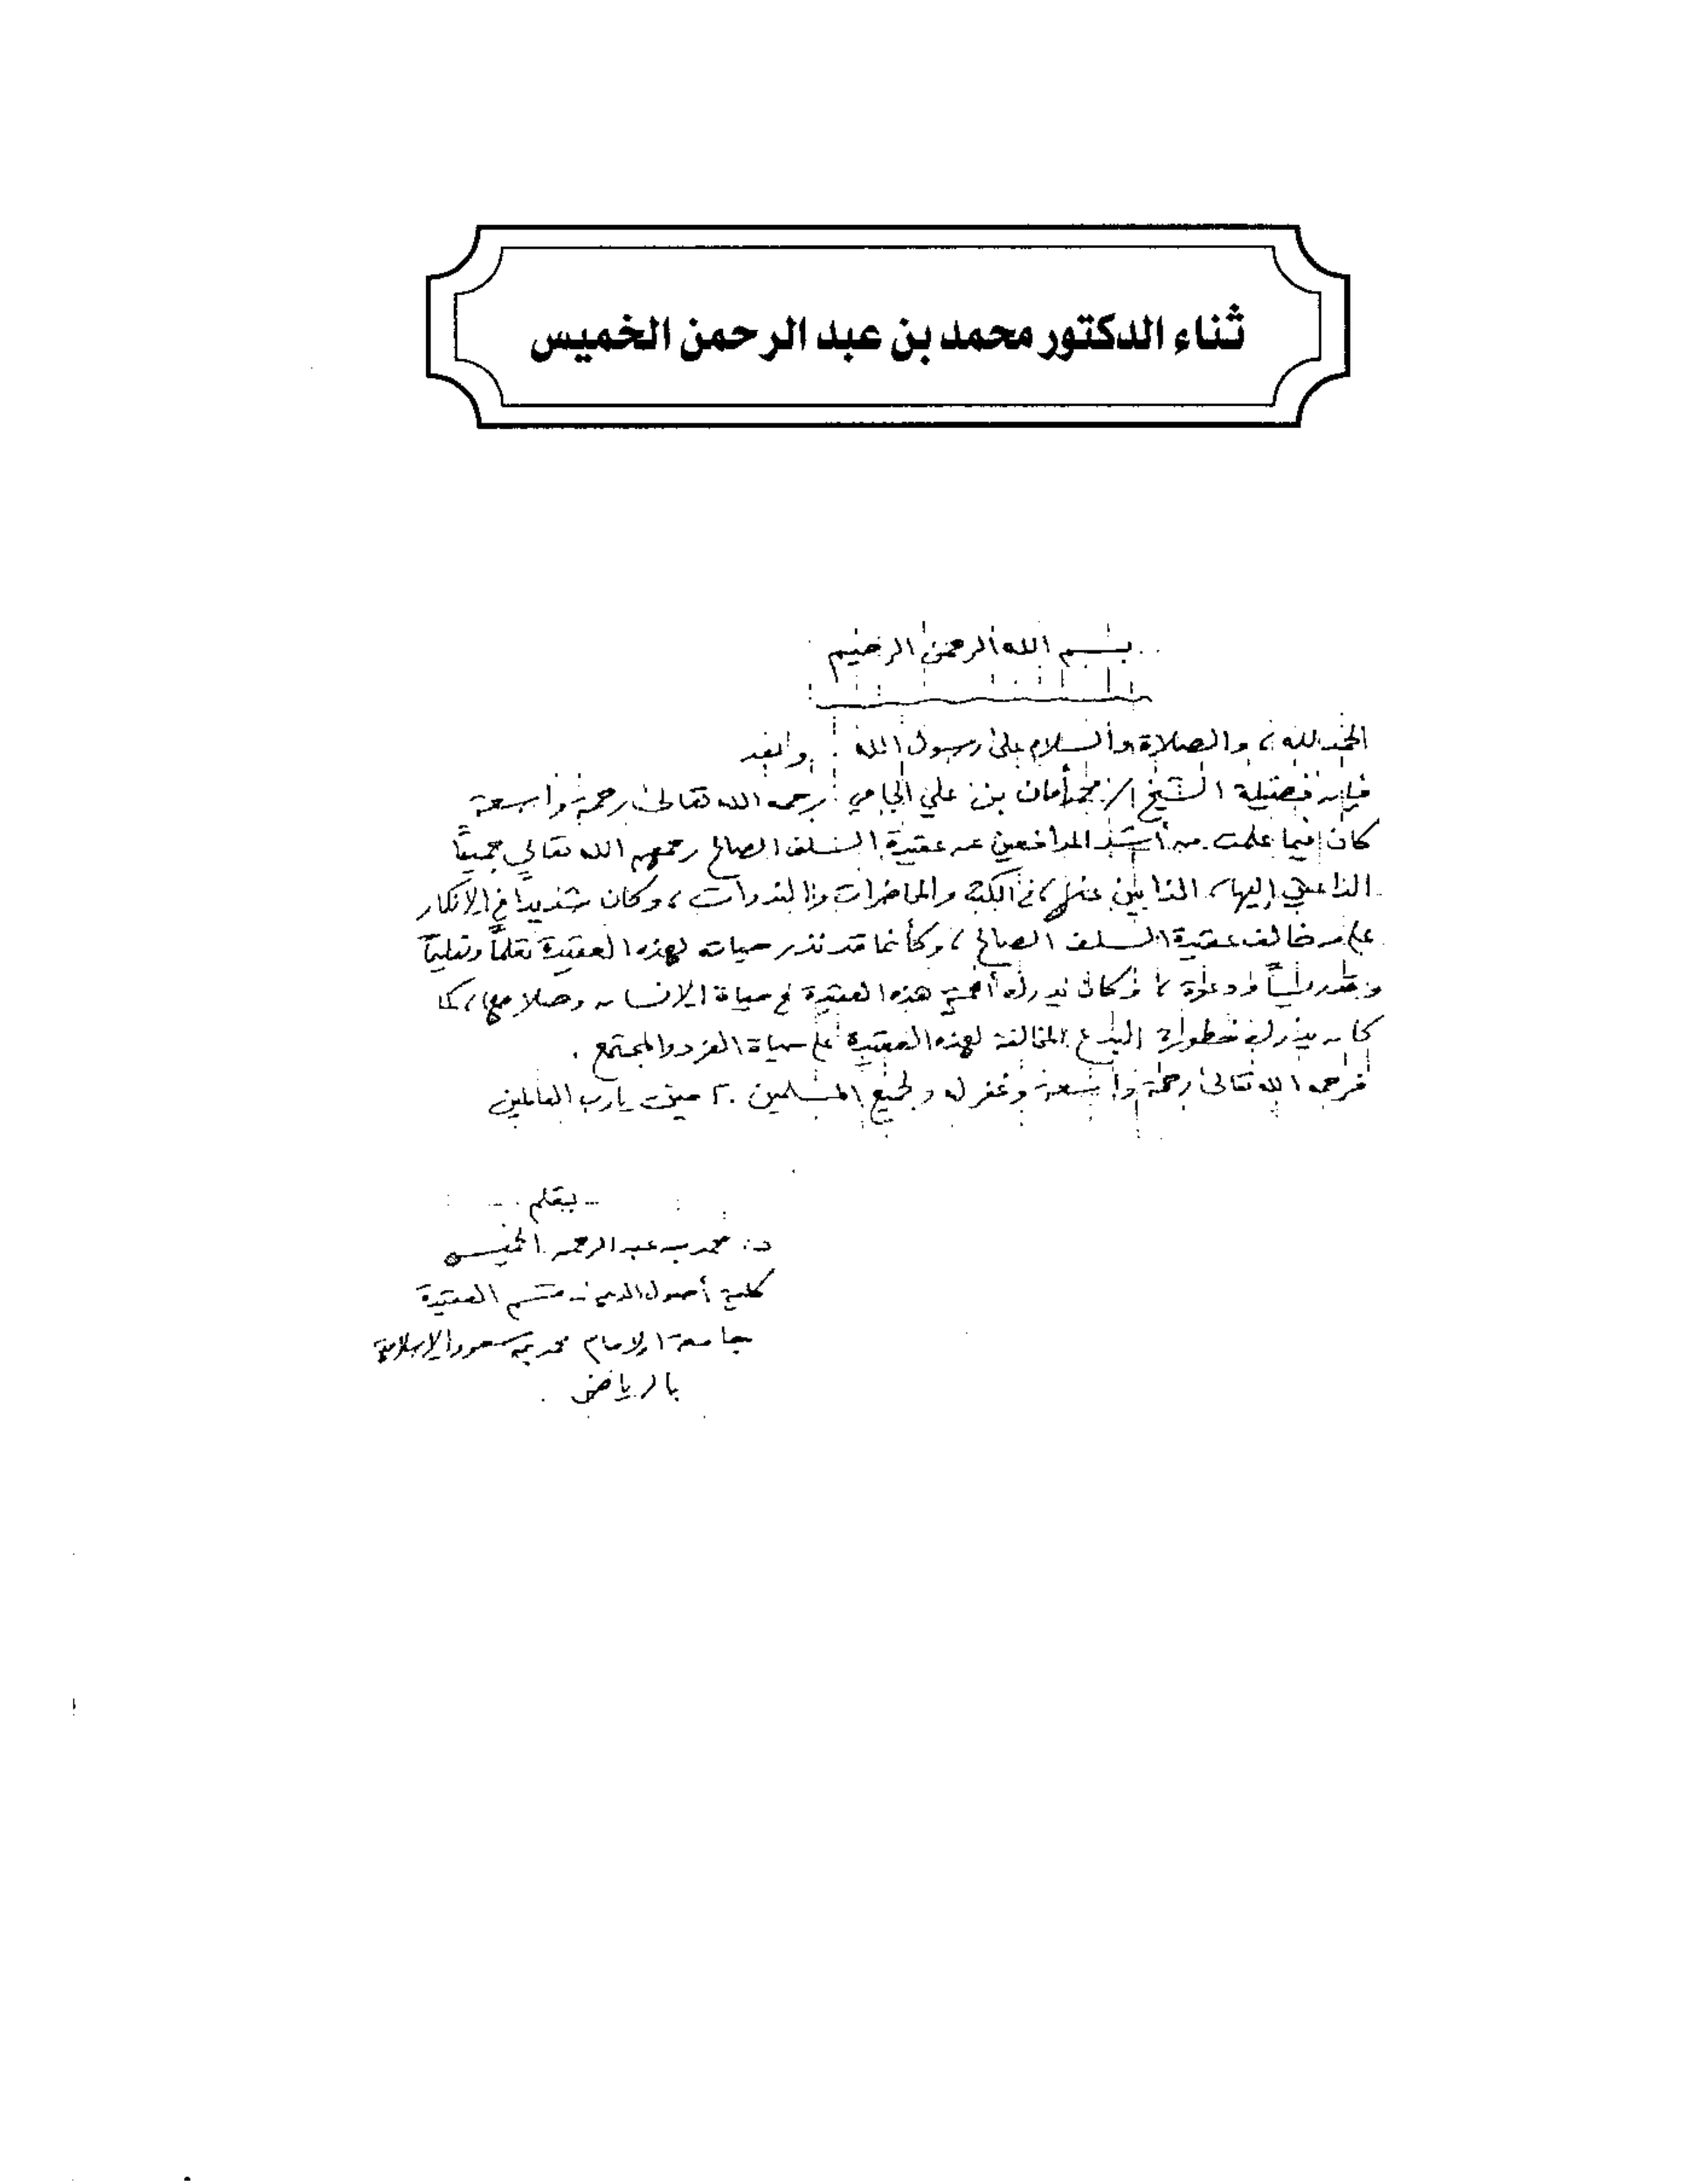 ثناء الدكتور محمد بن عبد الرحمن الخميس
بسم الله الرحمن الرحيم
الحمد لله، والصلاة والسلام على رسول الله. وبعد
فإن فضيلة الشيخ / محمد أمان بن علي الجامي رحمه الله تعالى رحمة واسعة
كان فيما علمت من أشد المدافعين عن عقيدة السلف الصالح رحمهم الله تعالى جميعاً
الداعين إليها، الذابين عنها، في الكتب والمحاضرات والندوات، وكان شديداً في الانكار
على من خالف عقيدة السلف الصالح، وكأنما قد نذر حياته لهذه العقيدة تعلماً وتعليماً
وتدريساً ودعوة، وكان يدرك أهمية هذه العقيدة في حياة الانسان وصلاحها، كما
كان يدرك خطورة البدع المخالفة لهذه العقيدة على حياة الفرد والمجتمع.
فرحمه الله تعالى رحمة واسعة وغفر له ولجميع المسلمين. آمين يا رب العالمين
بقلم
د. محمد بن عبد الرحمن الخميس
كلية أصول الدين - قسم العقيدة
جامعة الامام محمد بن سعود الإسلامية
بالرياض.